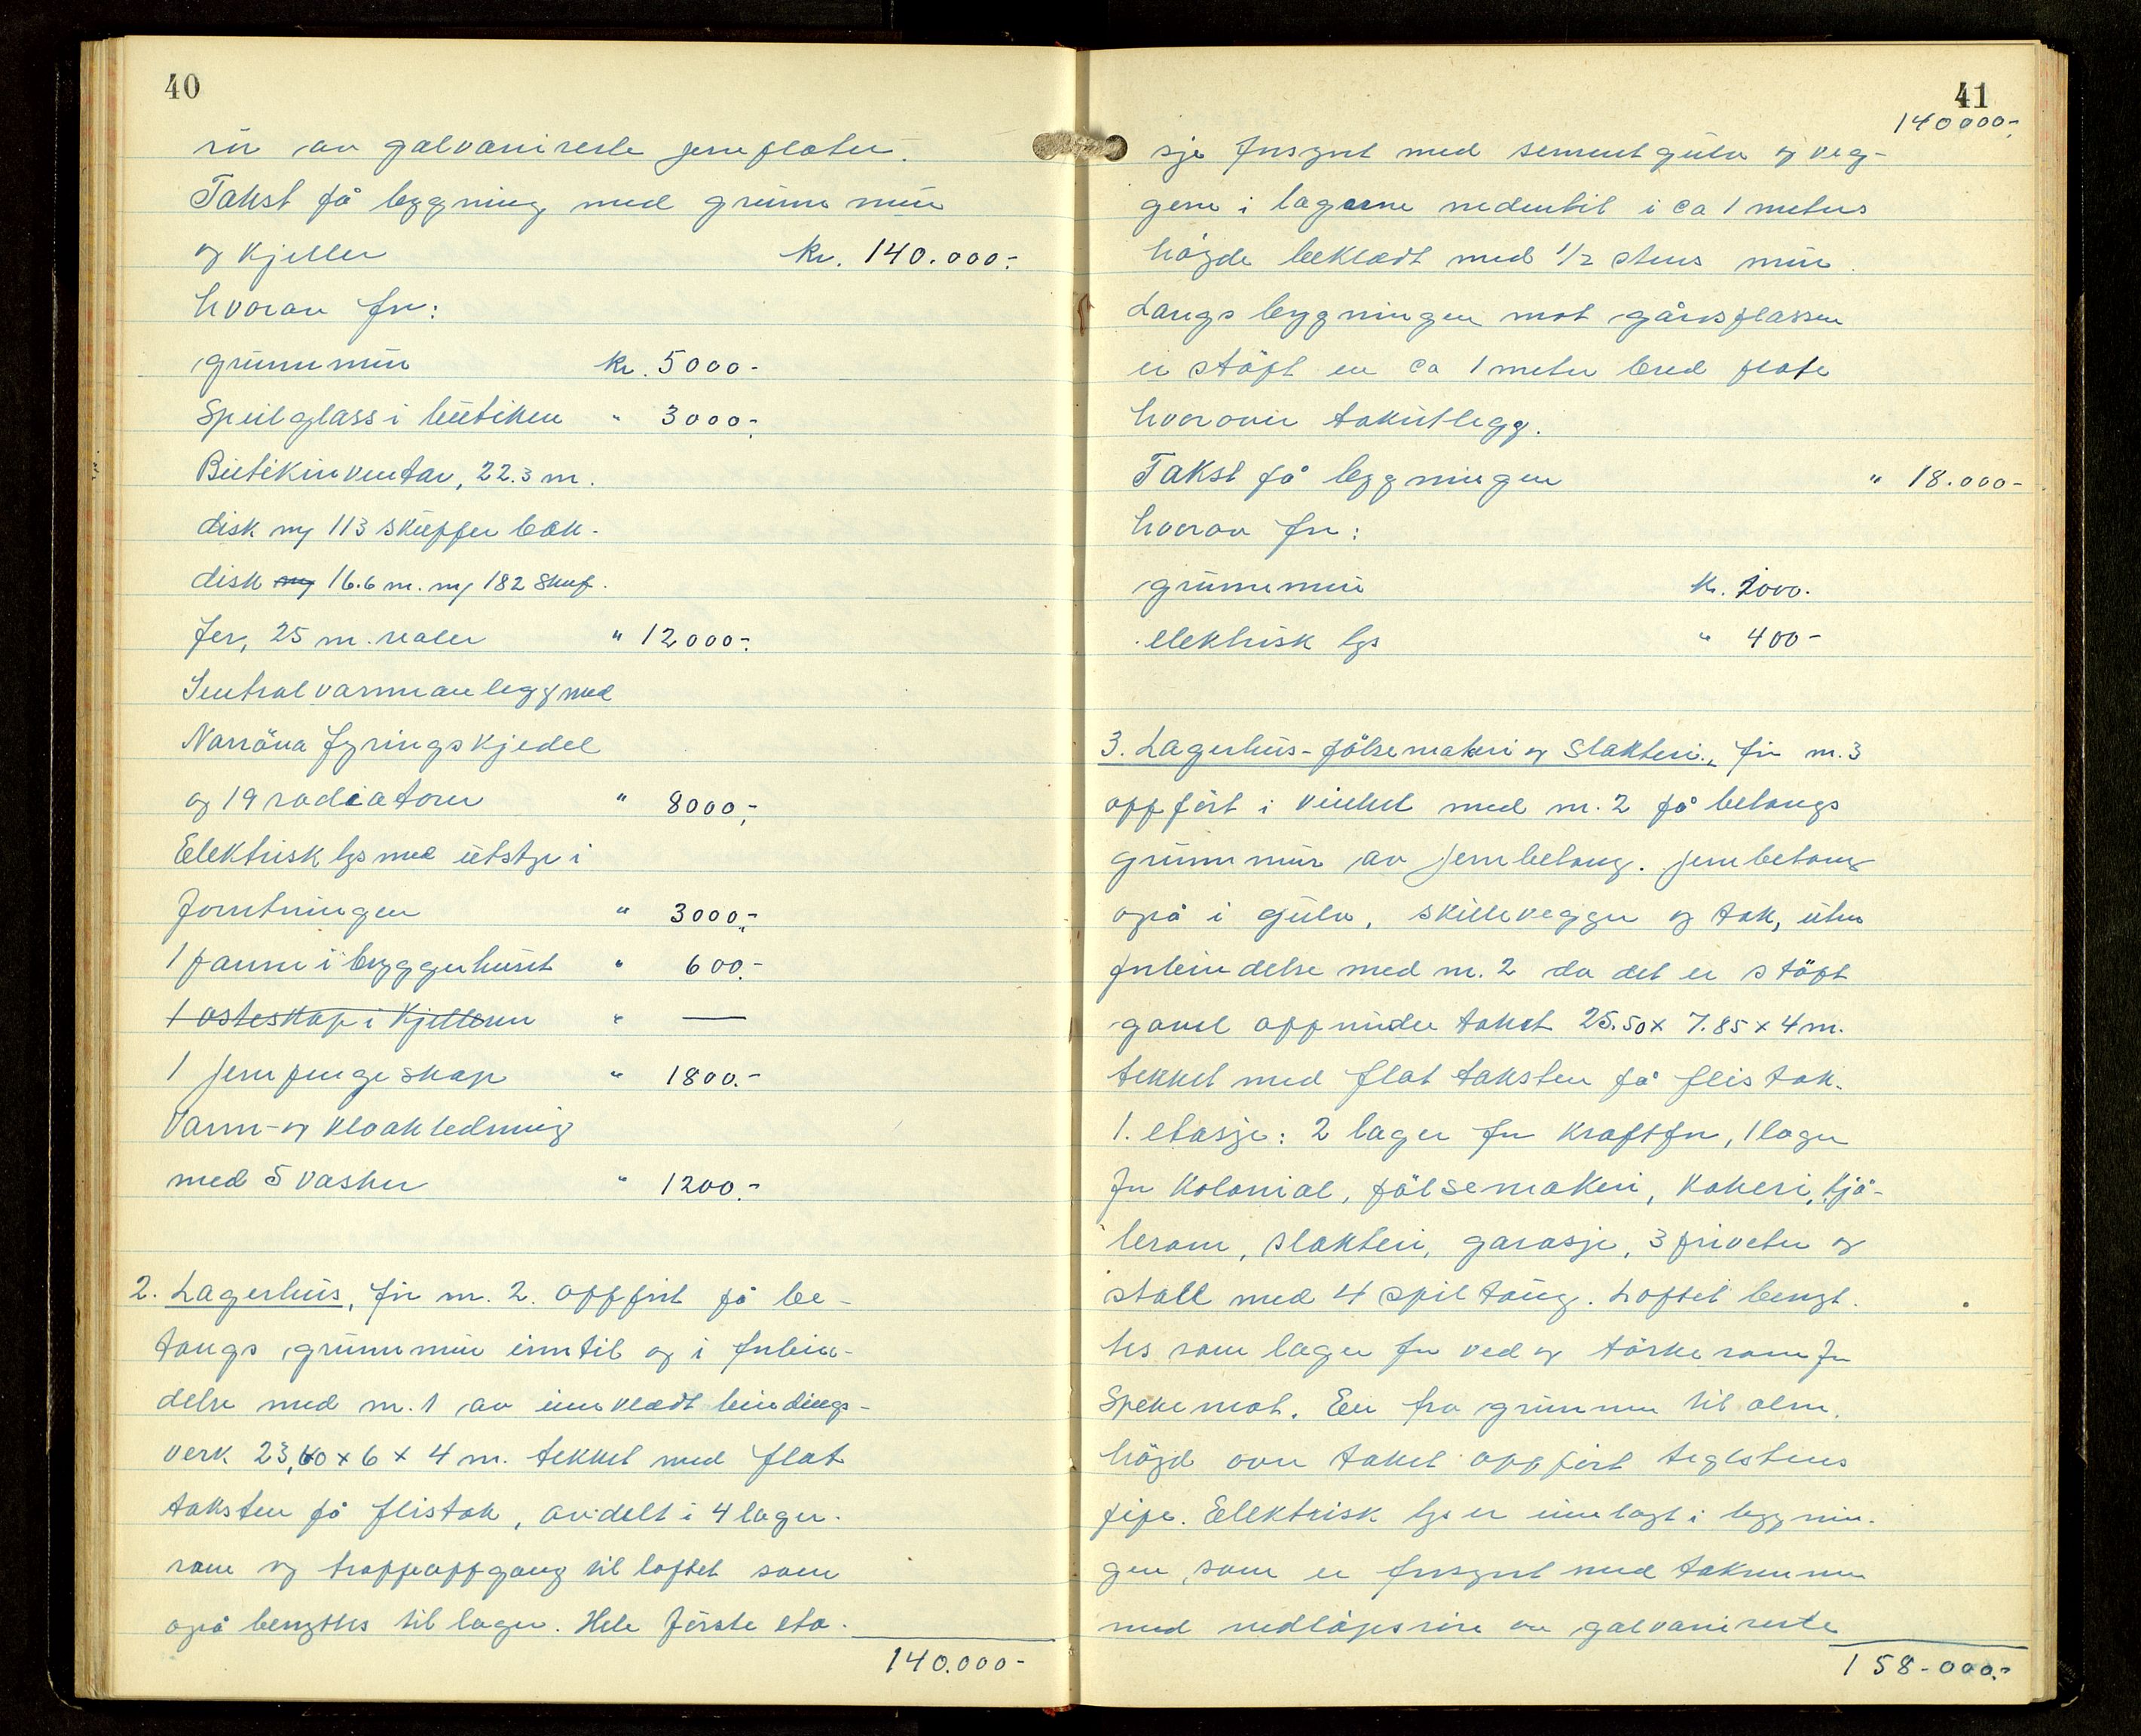 40
rör av galvaniserte jernplater.
Takst på bygning med grunnmur
og kjeller kr. 140.000.-
hvorav for:
grunnmur kr. 5000.-
Speilglass i butiken " 3000.-
Butikinventar, 22.3 m.
disk m/ 113 skuffer bak-
disk m/ 16.6 m. m/ 182 skuf.
fer, 25 m. realer " 12000.-
Sentralvarmanlegg med
Narröna fyringskjedel
og 19 radiatorer " 8000.-
Elektrisk lys med utstyr i
forretningen " 3000.-
1 panne i bryggerhuset " 600.-
1 osteskap i kjelleren " —
1 jernpengeskap " 1800.-
Vann- og kloakledning
med 5 vasker " 1200.-
2. Lagerhus, fir nr. 2. oppfört på be-
tongs grunnmur inntil og i forbin-
delse med nr. 1 av innkledt bindings-
verk 23,60 x 6 x 4 m. tekket med flat
taksten på flistak, avdelt i 4 lager-
rom og trappeoppgang til loftet som
også benyttes til lager. Hele förste eta-
140.000-
41
140000.-
sje forsynt med sementgulv og veg-
gene i lagerne nedentil i ca 1 meters
höyde bekledt med 1/2 stens mur.
Langs bygningen mot gårdsplassen
er stöpt en ca 1 meter bred plate
hvorover takutlegg.
Takst på bygningen " 18.000-
hvorav for:
grunnmur kr. 1000.-
elektrisk lys " 400-
3. Lagerhus- pölsemakeri og Slakteri., fir nr. 3
oppfört i vinkel med nr. 2 på betongs
grunnmur av jernbetong. Jernbetong
også i gulv, skillevegger og tak, uten
forbindelse med nr. 2 da det er stöpt
gavl opp under taket 25.50 x 7.85 x 4 m.
tekket med flat taksten på flistak.
1. etasje: 2 lager for kraftfor, 1 lager
for kolonial, pölsemakeri, kokeri, kjö-
lerom, slakteri, garasje, 3 priveter og
stall med 4 spiltaug. Loftet benyt-
tes som lager for ved og törkerom for
Spekemat. En fra grunnen til alm.
höyd over taket oppfört teglstens
pipe. Elektrisk lys er innlagt i bygnin-
gen, som er forsynt med takrenner
med nedlöpsrör av galvaniserte
158.000.-